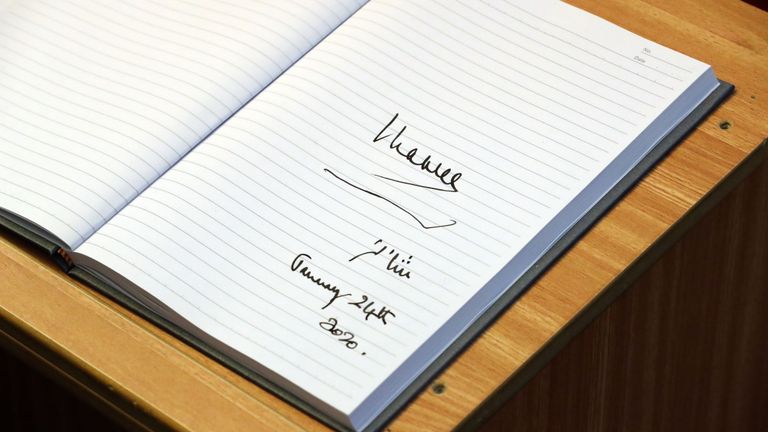 No.
Date
Charles
January 24th
2020.